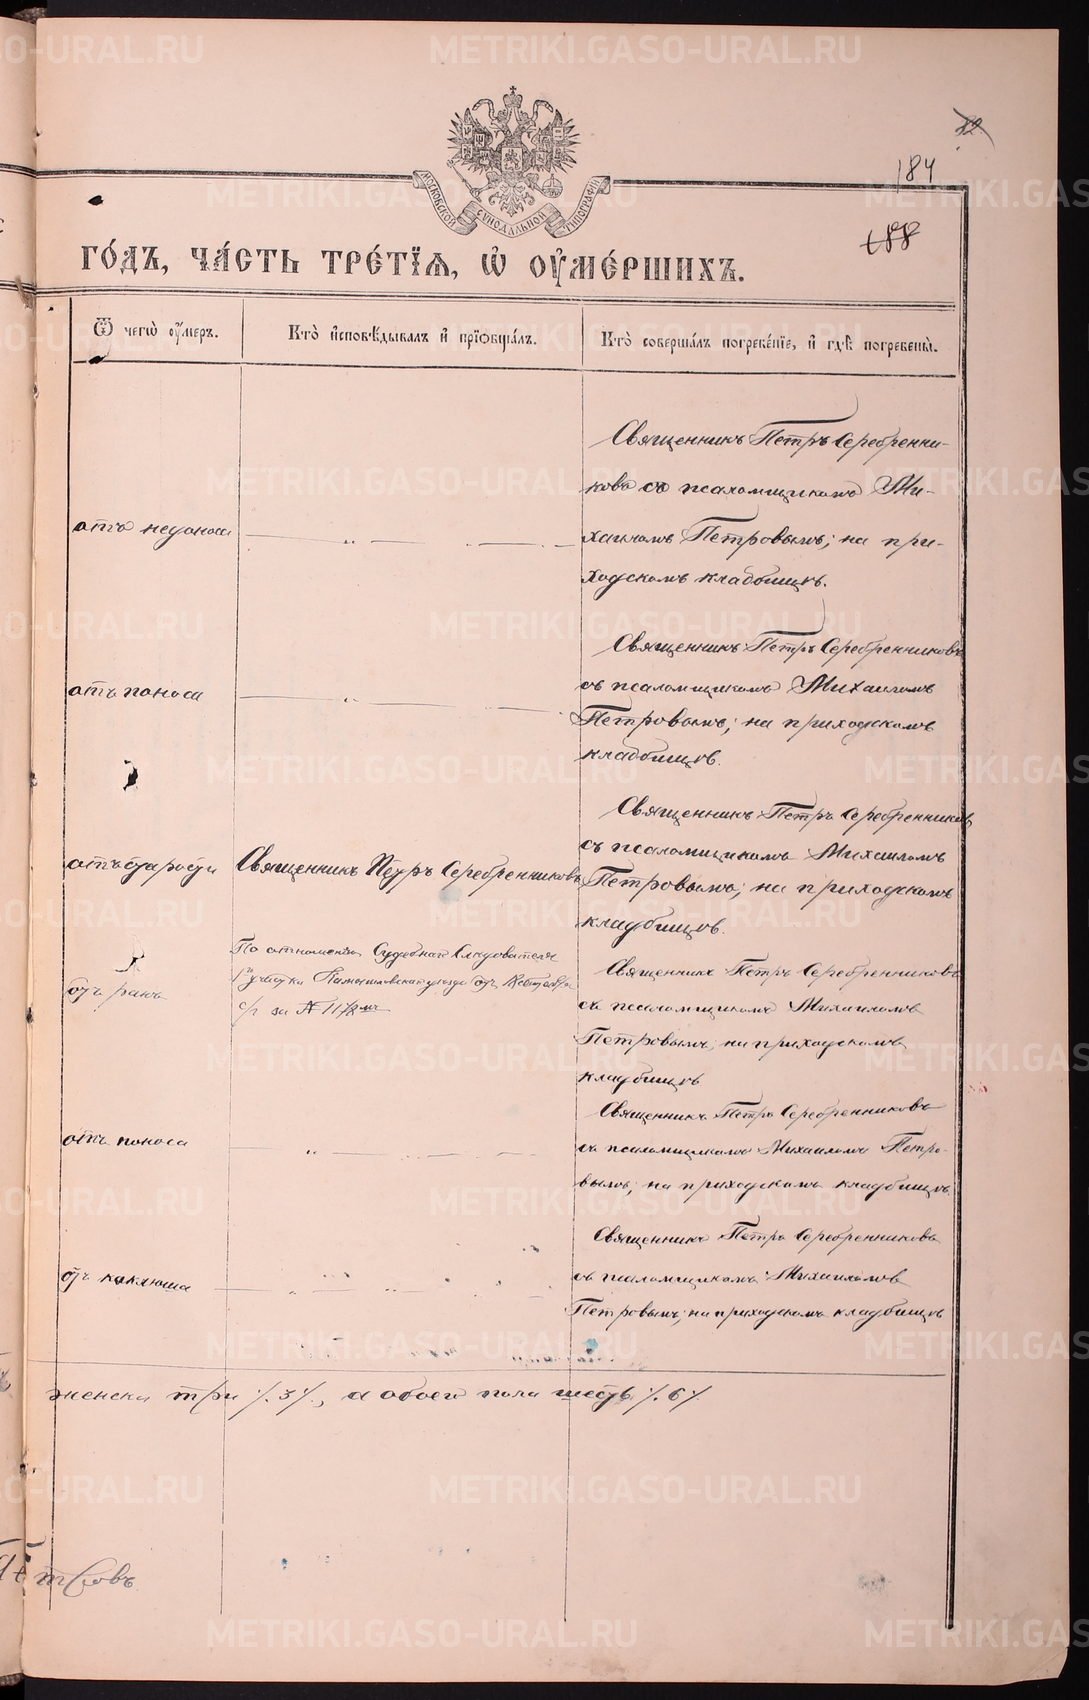 METRIKI.GASO-URAL.RU
184
188
МОСКОВСКОЙ СѴНОДАЛЬНОЙ ТИПОГРАФІИ
ГО́ДЪ, ЧА́СТЬ ТРЕ́ТІЯ, Ѡ҆ ОУ҆МЕ́РШИХЪ.
Ѿ чегѡ̀ оу҆́меръ.
Кто̀ и҆сповѣ́дывалъ и҆ прїѡбща́лъ.
Кто̀ соверша́лъ погребе́нїе, и҆ гдѣ̀ погребены̀.
отъ недоноса
Священникъ Петръ Серебренни-
ковъ съ псаломщикомъ Ми-
хаиломъ Петровымъ; на при-
ходскомъ кладбищѣ.
отъ поноса
Священникъ Петръ Серебренниковъ
съ псаломщикомъ Михаиломъ
Петровымъ; на приходскомъ
кладбищѣ.
отъ старости
Священникъ Петръ Серебренниковъ
Священникъ Петръ Серебренниковъ
съ псаломщикомъ Михаиломъ
Петровымъ; на приходскомъ
кладбищѣ.
отъ ранъ
По отношенію Судебнаго Слѣдователя
1 участка Камышловскаго уѣзда отъ
за № 1178мъ
Священникъ Петръ Серебренниковъ
съ псаломщикомъ Михаиломъ
Петровымъ; на приходскомъ
кладбищѣ
отъ поноса
Священникъ Петръ Серебренниковъ
съ псаломщикомъ Михаиломъ Петро-
вымъ; на приходскомъ кладбищѣ.
отъ коклюша
Священникъ Петръ Серебренниковъ
съ псаломщикомъ Михаиломъ
Петровымъ; на приходскомъ кладбищѣ
женска три /.3/., а обоего пола шесть /.6/.
Петровъ